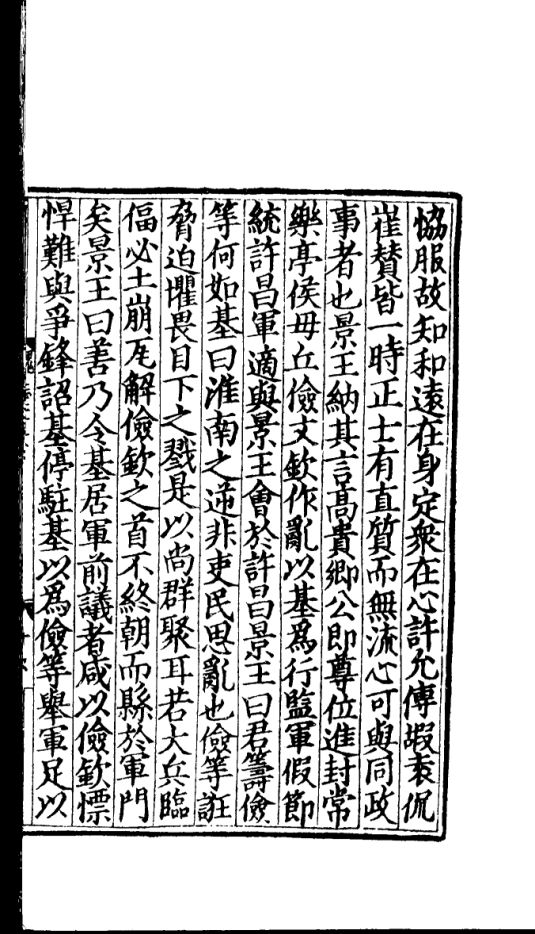 協服故知和遠在身定衆在心許允傅嘏袁侃
崔賛皆一時正士有直質而無流心可與同政
事者也景王納其言髙貴鄉公即尊位進封常
樂亭侯毋丘儉文欽作亂以基爲行監軍假節
統許昌軍適與景王㑹於許昌景王曰君籌儉
等何如基曰淮南之逆非吏民思亂也儉等誑
脅迫懼畏目下之戮是以尚群聚耳若大兵臨
偪必土崩瓦解儉欽之首不終朝而縣於軍門
矣景王曰善乃令基居軍前議者咸以儉欽慓
悍難與爭鋒詔基停駐基以爲儉等舉軍足以